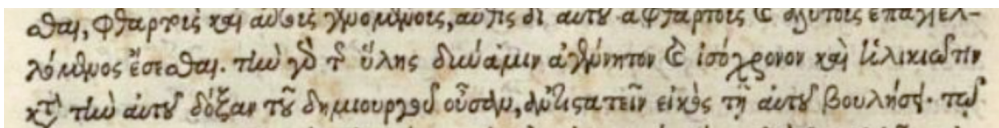 σθαι, φθαρτοῖς καὶ αὖθις γινομένοις, αὐτοῖς δι' αὐτοῦ ἀφθάρτοις καὶ ἀλύτοις ἐπαγγελ-
λόμενος ἔσεσθαι. τὴν γὰρ τῆς ὕλης δύναμιν ἀγέννητον καὶ ἰσόχρονον καὶ ἡλικιῶτιν
κατὰ τὴν αὐτοῦ δόξαν τοῦ δημιουργοῦ οὖσαν, ἀντιστατεῖν εἰκὸς τῇ αὐτοῦ βουλήσει.